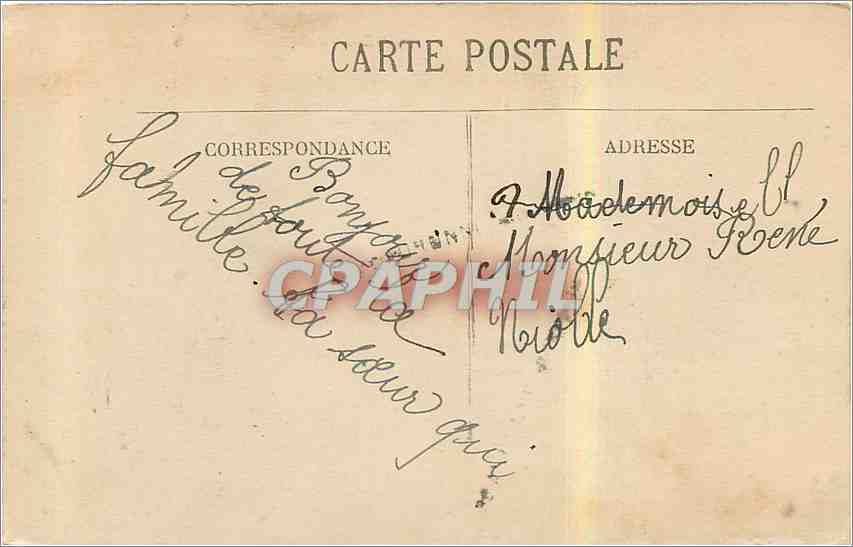 CARTE POSTALE
CORRESPONDANCE
Bonjour
de toute la
famille. ta sœur qui
ADRESSE
a Mademoisell
Monsieur René
Niolle
CPAPHIL